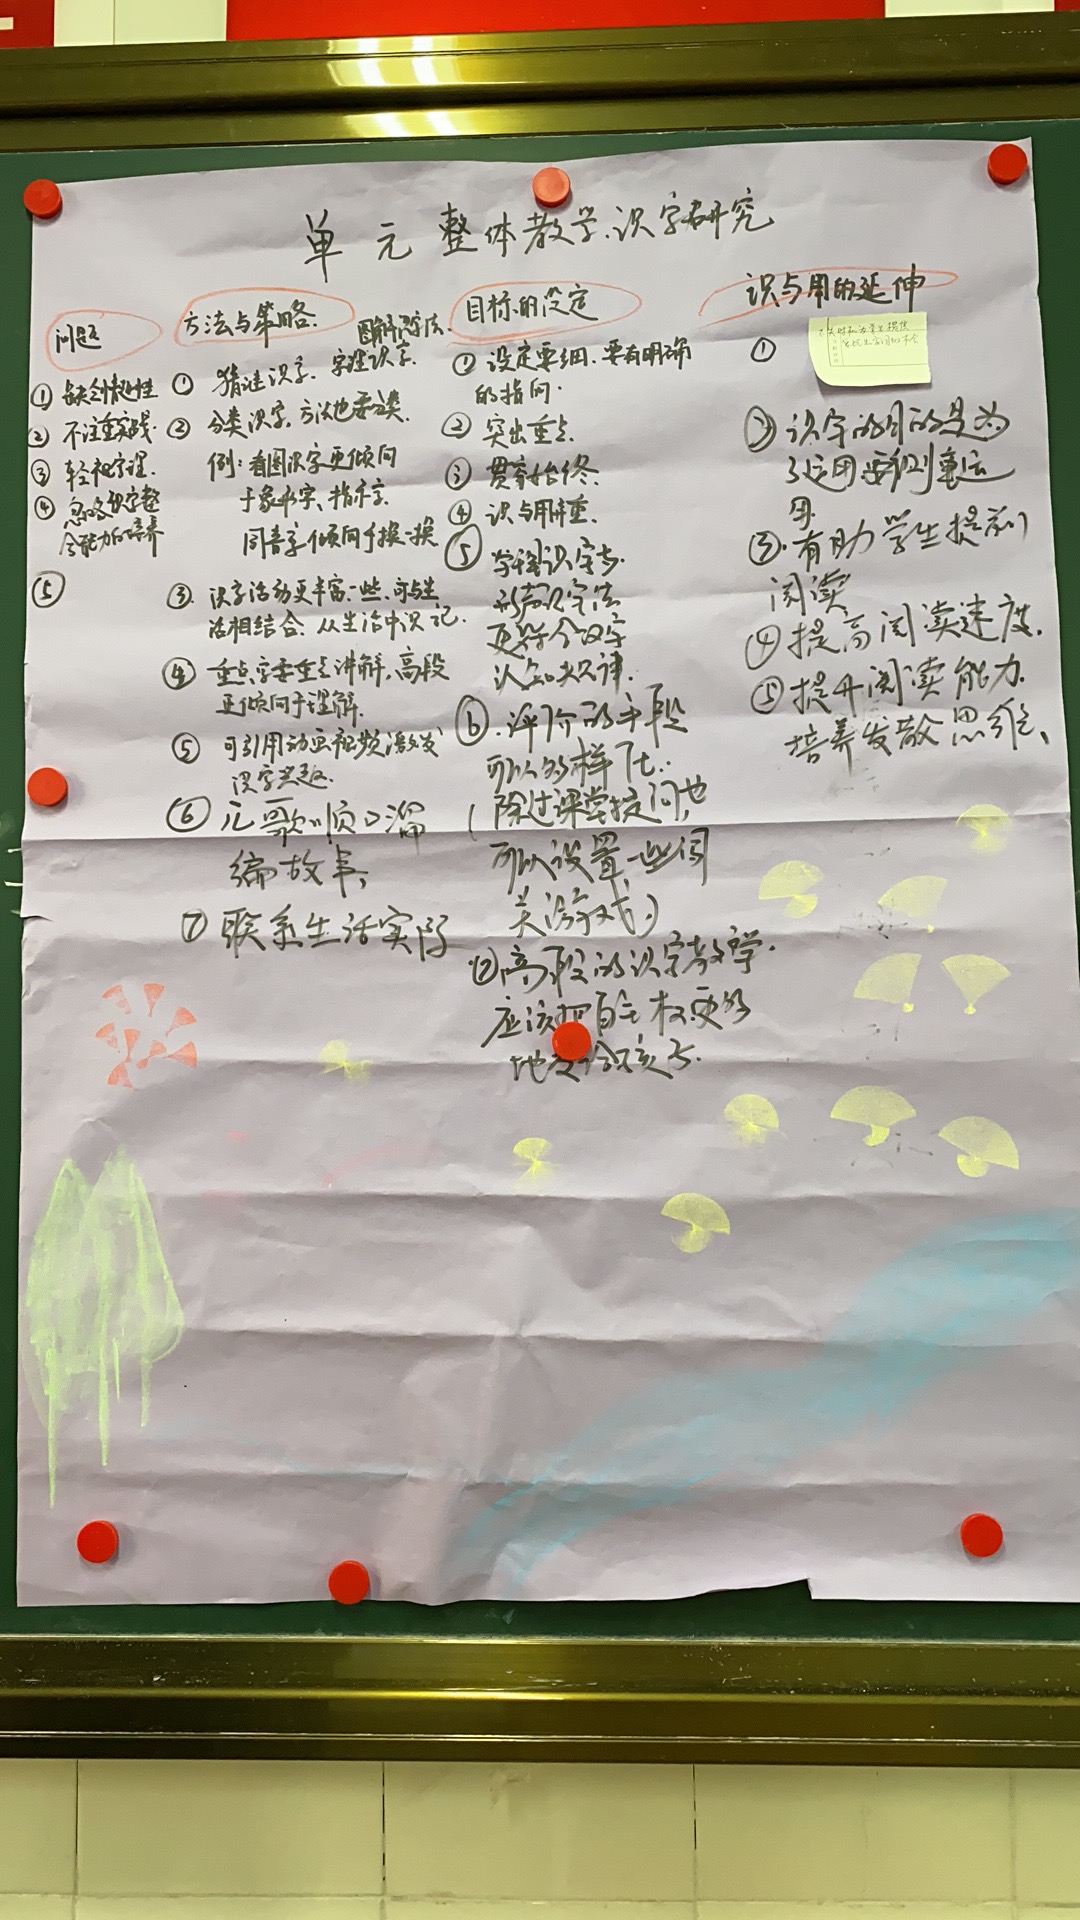 单元整体教学、识字研究
问题
① 缺乏创新性
② 不注重实践
③ 轻视字理
④ 忽略识字整
合能力的培养
⑤
方法与策略
图解识字法
① 猜谜识字、字理识字
② 分类识字,方法也要分类
例:看图识字更倾向
于象形字、指事字
同音字倾向于换一换
③ 识字活动更丰富一些,可与生
活相结合,从生活中识记.
④ 重点字要重点讲解,高段
更倾向于理解.
⑤ 可引用动画视频激发
识字兴趣.
⑥ 儿歌、顺口溜
编故事、
⑦ 联系生活实际
目标的设定
① 设定要细、要有明确
的指向.
② 突出重点.
③ 贯穿始终.
④ 识与用并重.
⑤ 识字与
形声识字法
更符合汉字
认知规律.
⑥ .评价的手段
可以多样化..
(除过课堂提问也
可以设置一些闯
关游戏)
⑦ 高段的识字教学.
应该把自主权更多
地交给孩子.
识与用的延伸
①
② 识字的目的是为
了运用,要注重运
用.
③.有助学生提前
阅读
④ 提高阅读速度.
⑤ 提升阅读能力
培养发散思维、